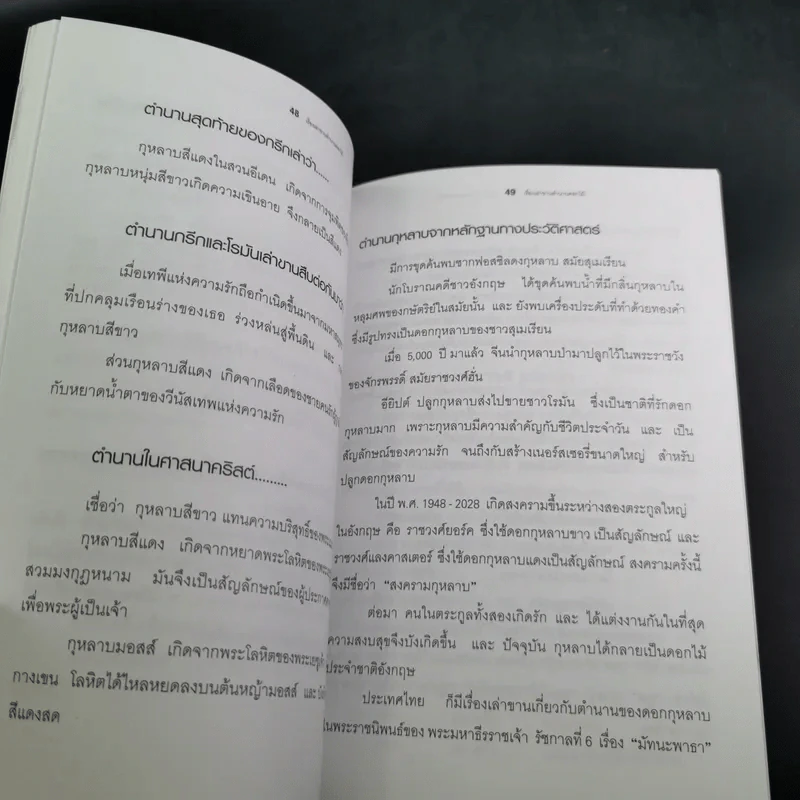 48
ตำนานสุดท้ายของกรีกเล่าว่า.....
กุหลาบสีแดงในสวนอีเดน เกิดจากการจุมพิต
กุหลาบหนุ่มสีขาวเกิดความเขินอาย จึงกลายเป็นสีแดง
ตำนานกรีกและโรมันเล่าขานสืบต่อกันมาว่า
เมื่อเทพีแห่งความรักถือกำเนิดขึ้นมาจาก
ที่ปกคลุมเรือนร่างของเธอ ร่วงหล่นสู่พื้นดิน และ
กุหลาบสีขาว
ส่วนกุหลาบสีแดง เกิดจากเลือดของชายคน
กับหยาดน้ำตาของวีนัสเทพแห่งความรัก
ตำนานในศาสนาคริสต์........
เชื่อว่า กุหลาบสีขาว แทนความบริสุทธิ์ของ
กุหลาบสีแดง เกิดจากหยาดพระโลหิตของ
สวมมงกุฎหนาม มันจึงเป็นสัญลักษณ์ของผู้
เพื่อพระผู้เป็นเจ้า
กุหลาบมอสส์ เกิดจากพระโลหิตของ
กางเขน โลหิตได้ไหลหยดลงบนต้นหญ้ามอสส์ และ
สีแดงสด
49
ตำนานกุหลาบจากหลักฐานทางประวัติศาสตร์
มีการขุดค้นพบซากฟอสซิลดงกุหลาบ สมัยสุเมเรียน
นักโบราณคดีชาวอังกฤษ ได้ขุดค้นพบน้ำที่มีกลิ่นกุหลาบใน
หลุมศพของกษัตริย์ในสมัยนั้น และ ยังพบเครื่องประดับที่ทำด้วยทองคำ
ซึ่งมีรูปทรงเป็นดอกกุหลาบของชาวสุเมเรียน
เมื่อ 5,000 ปี มาแล้ว จีนนำกุหลาบป่ามาปลูกไว้ในพระราชวัง
ของจักรพรรดิ์ สมัยราชวงศ์ฮั่น
อียิปต์ ปลูกกุหลาบส่งไปขายชาวโรมัน ซึ่งเป็นชาติที่รักดอก
กุหลาบมาก เพราะกุหลาบมีความสำคัญกับชีวิตประจำวัน และ เป็น
สัญลักษณ์ของความรัก จนถึงกับสร้างเนอร์สเซอรี่ขนาดใหญ่ สำหรับ
ปลูกดอกกุหลาบ
ในปี พ.ศ. 1948 - 2028 เกิดสงครามขึ้นระหว่างสองตระกูลใหญ่
ในอังกฤษ คือ ราชวงศ์ยอร์ค ซึ่งใช้ดอกกุหลาบขาว เป็นสัญลักษณ์ และ
ราชวงศ์แลงคาสเตอร์ ซึ่งใช้ดอกกุหลาบแดงเป็นสัญลักษณ์ สงครามครั้งนี้
จึงมีชื่อว่า “สงครามกุหลาบ”
ต่อมา คนในตระกูลทั้งสองเกิดรัก และ ได้แต่งงานกันในที่สุด
ความสงบสุขจึงบังเกิดขึ้น และ ปัจจุบัน กุหลาบได้กลายเป็นดอกไม้
ประจำชาติอังกฤษ
ประเทศไทย ก็มีเรื่องเล่าขานเกี่ยวกับตำนานของดอกกุหลาบ
ในพระราชนิพนธ์ของ พระมหาธีรราชเจ้า รัชกาลที่ 6 เรื่อง “มัทนะพาธา”